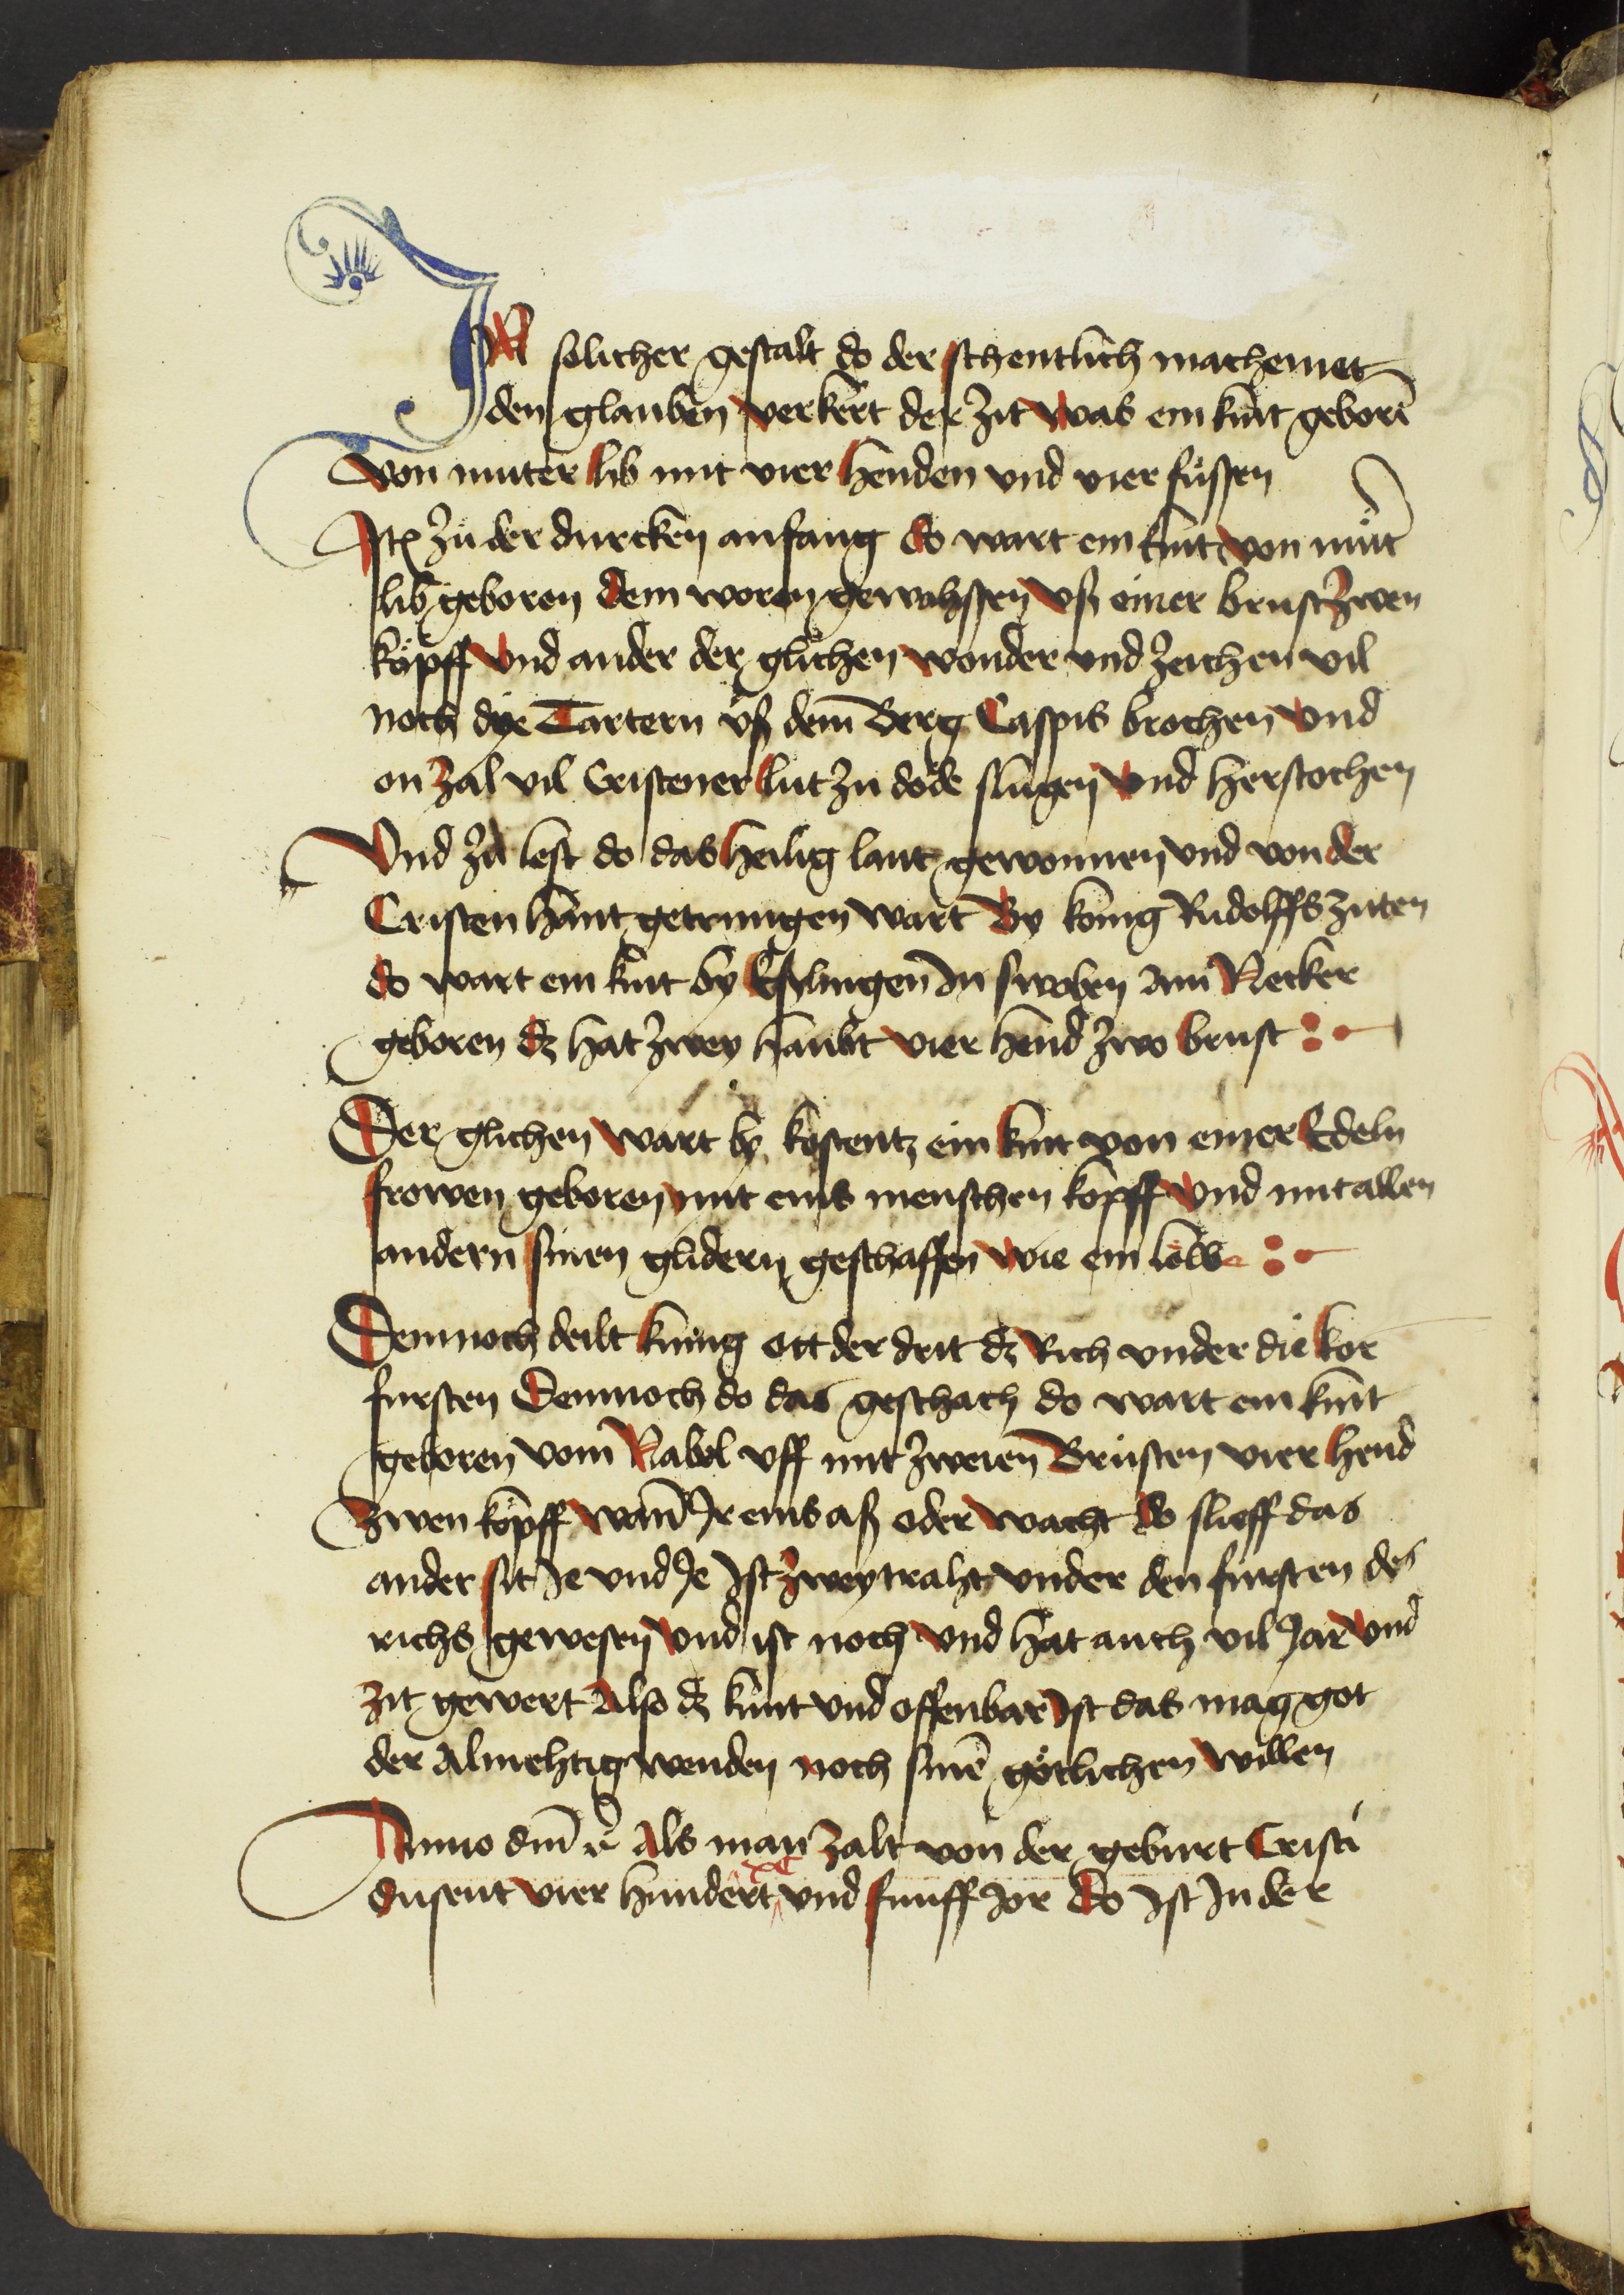 IN solicher gestalt do der schentlich machemet
den glauben verkert der zit was ein kint geborē
von muter lib mit vier henden vnd vier füssen
Itē zü der durcken anfang do wart ein kint von mütr̄
lib geboren dem woren gewahssen vß einer brust zwen
köpff vnd ander der glichen wonder vnd zeichen vil
noch dye Tartern vß dem Berg Caspis brochen vnd
on zal vil Cristener lüt zu dode slugen vnd herstochen
Vnd zü lest do das heilig lant gewonnen vnd von der
Cristen hant getrungen wart By konig Rüdolffs ziten
do wart ein kint by Eßlingen In swoben Am Necker
geboren dz hat zwey haubt vier hend zwo brust
Der glichen wart by kostentz ein kint von einer Edeln
frowen geboren mit eins menschen kopff vnd mit allen
andern sinen glidern geschaffen wie ein löwe
Demnoch deilt kunig ott der drit dz Rich vnder die kor
fursten Demnoch do das geschach do wart ein kint
geboren vom Nabel vff mit zweien Brüsten vier hend
zwen köpff wann Ir eins aß oder wacht do slieff das
ander sit Ie vnd Ie Ist zweytraht vnder den fursten des
richs gewesen vnd ist noch vnd hat auch vil Jar vnd
zit gewert Also dz kunt vnd offenbar Ist das mag got
der Almehtig wenden noch sinē götlichen willen
Anno dm̄ rc̄ Als man zalt von der geburt Cristi
dusent vier hundert xc vnd funff Jor do Ist In der